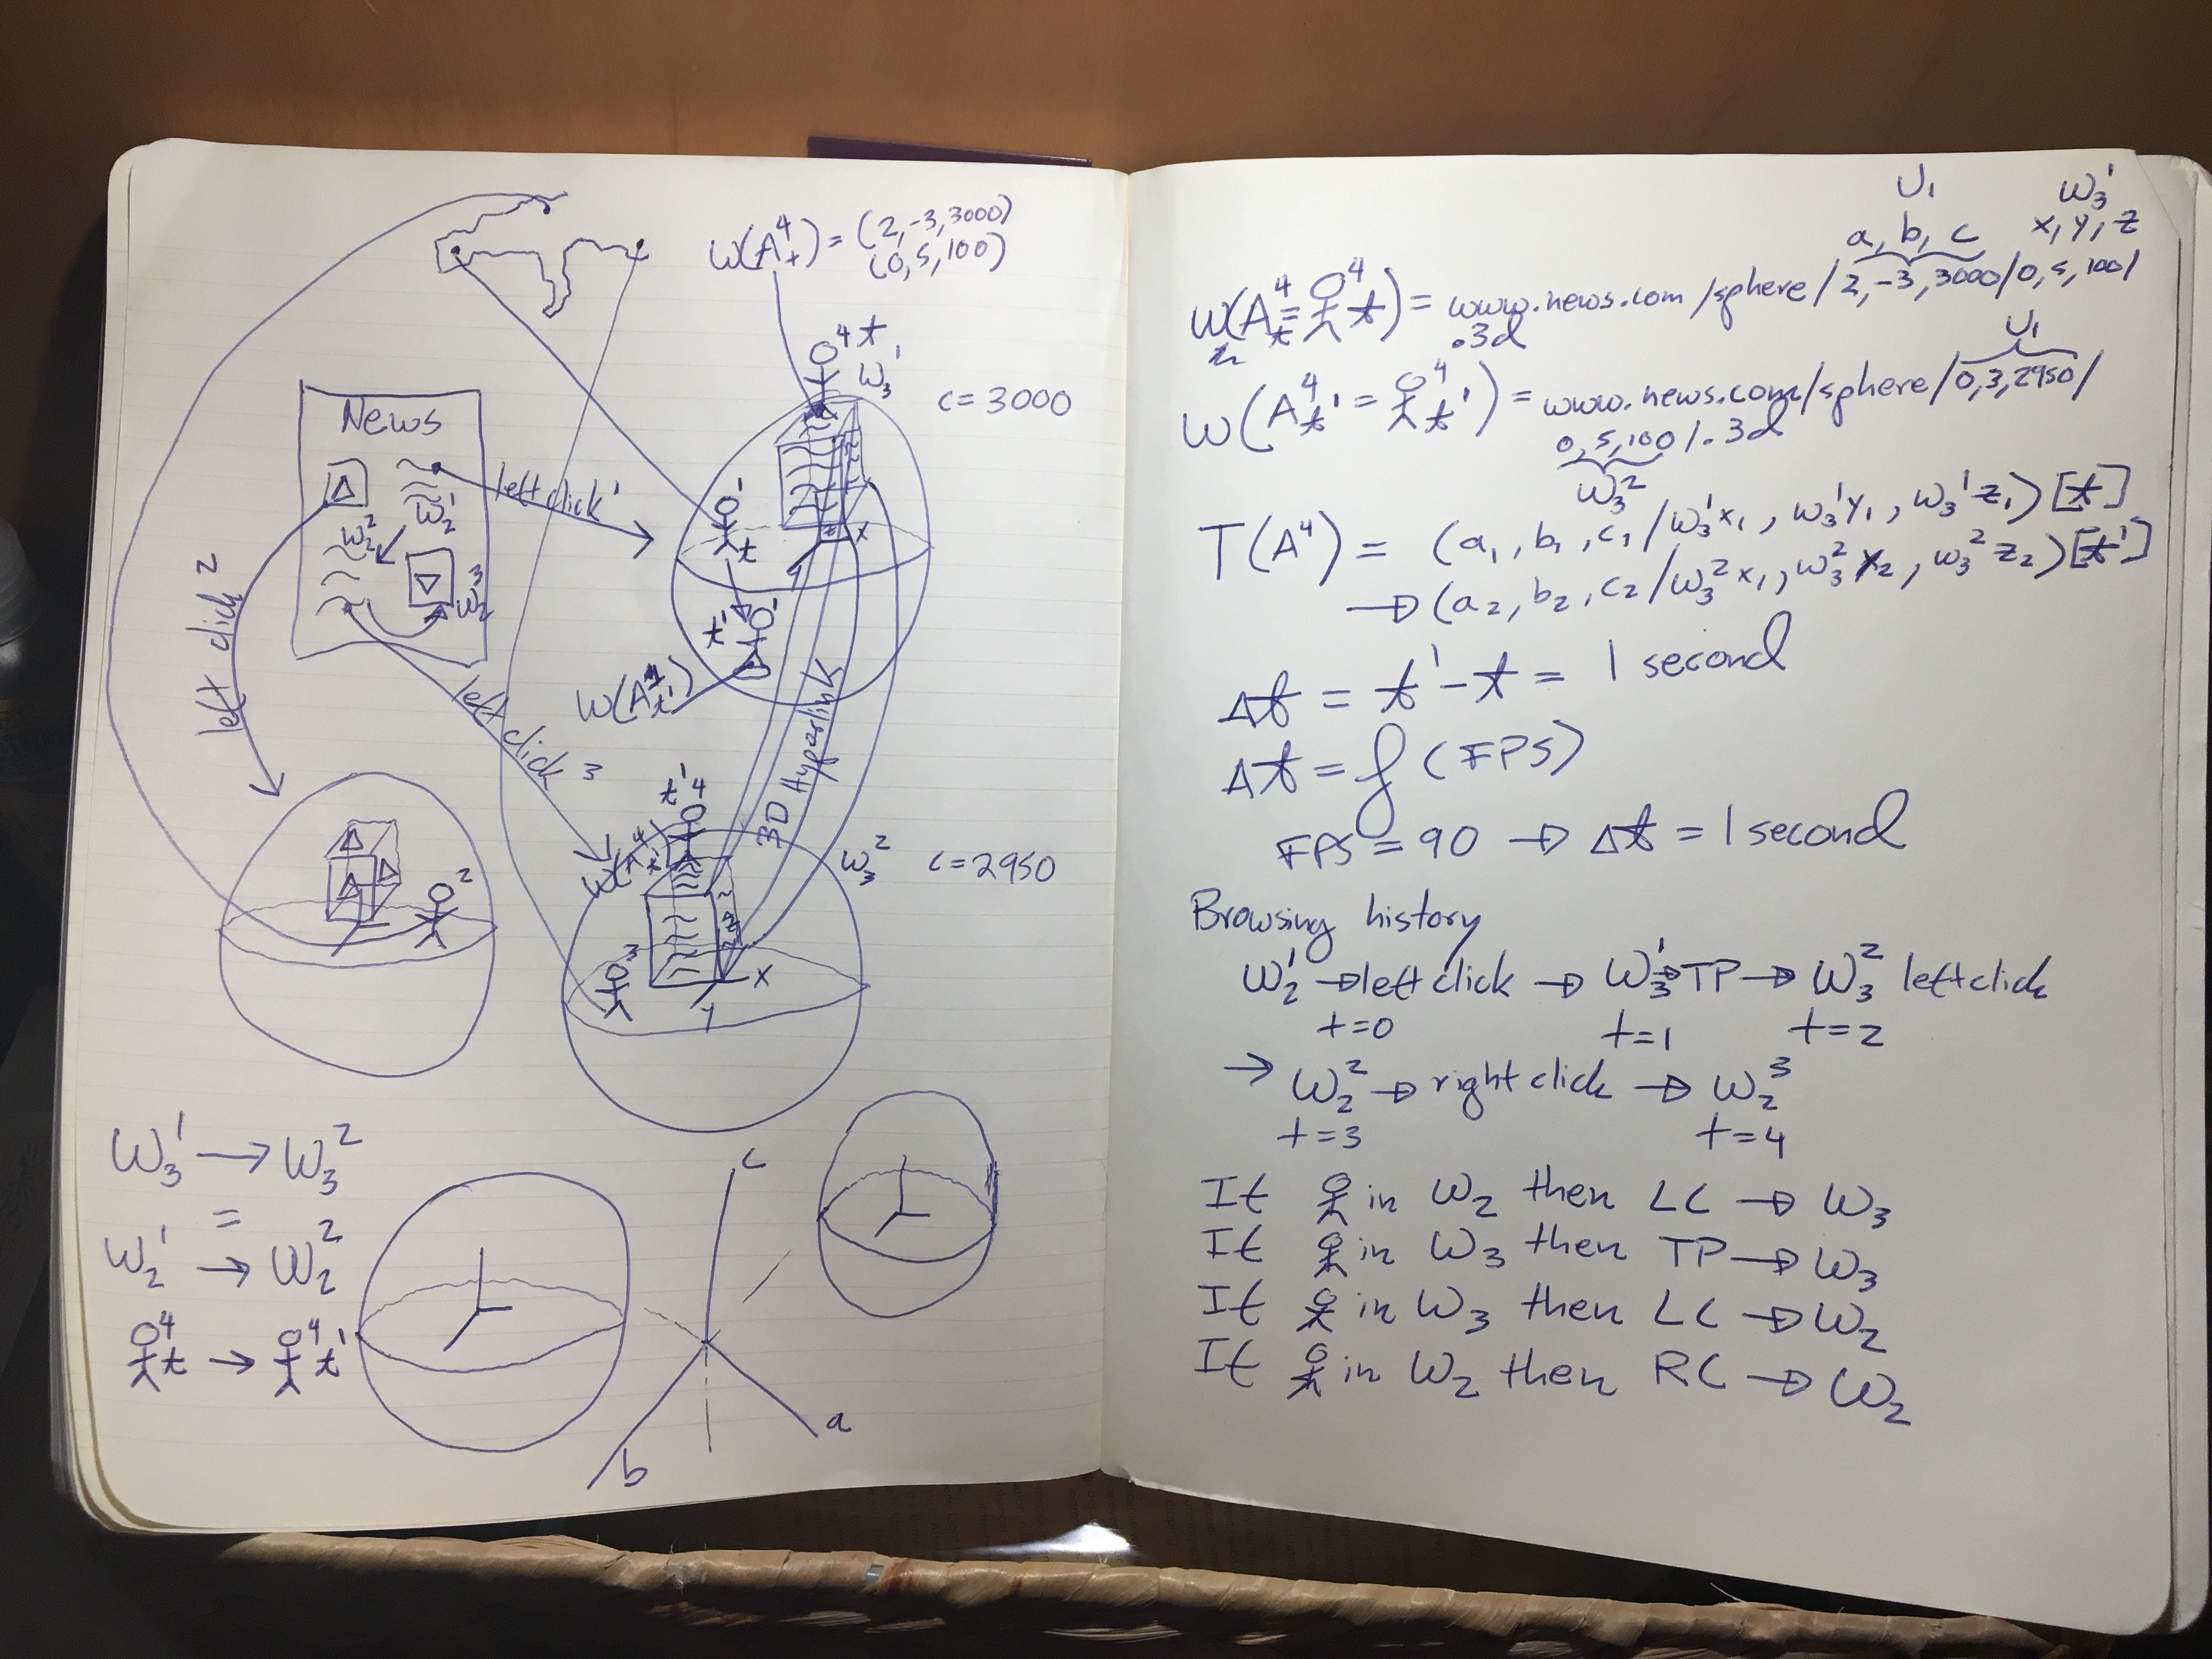 W(A⁴ₜ) = (2,-3,3000)
(0,5,100)
4 t
W₃¹
c = 3000
News
W₂¹
W₂²
W₂³
left click 1
left click 2
left click 3
1
t
x
t' 1
3D Hyperlink
t' 4
W₃²
c = 2950
2
3
x
y
W₃¹ → W₃²
=
W₂¹ → W₂²
4 t → 4 t'
c
a
b
U₁ W₃¹
a, b, c x, y, z
W(A⁴ₜ = 4 t) = www.news.com/sphere/2,-3,3000/0,5,100/
.3d
U₁
W(A⁴ₜ' = 4 t') = www.news.com/sphere/0,3,2950/
0,5,100/.3d
W₃²
T(A⁴) = (a₁, b₁, c₁/W₃¹x₁, W₃¹y₁, W₃¹z₁)[t]
→ (a₂, b₂, c₂/W₃²x₁, W₃²x₂, W₃²z₂)[t']
Δt = t' - t = 1 second
Δt = f(FPS)
FPS = 90 → Δt = 1 second
Browsing history
W₂¹ → left click → W₃¹ → TP → W₃² left click
t=0 t=1 t=2
→ W₂² → right click → W₂³
t=3 t=4
If in W₂ then LC → W₃
If in W₃ then TP → W₃
If in W₃ then LC → W₂
If in W₂ then RC → W₂